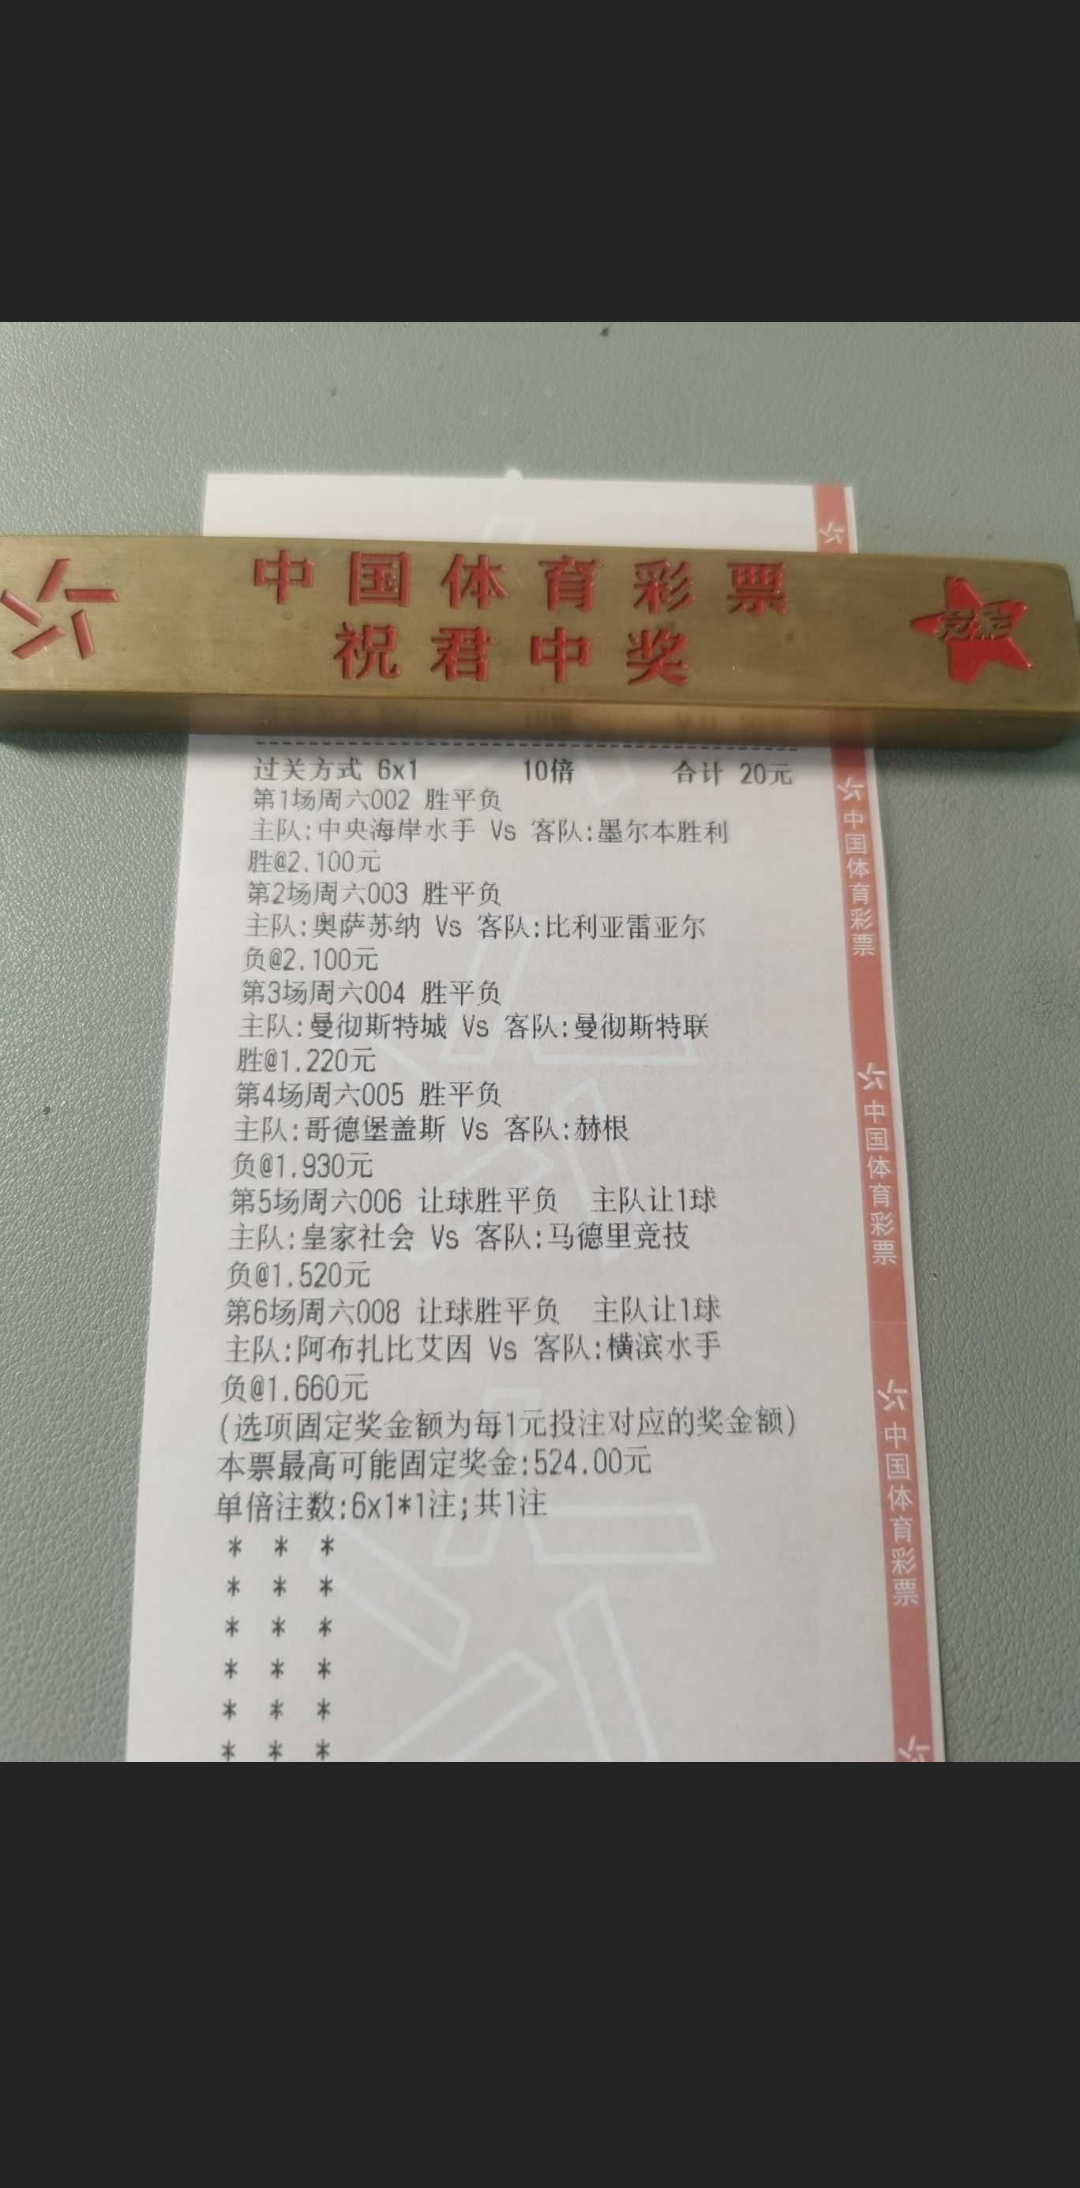 中国体育彩票
祝君中奖
过关方式 6x1 10倍 合计 20元
第1场周六002 胜平负
主队:中央海岸水手 Vs 客队:墨尔本胜利
胜@2.100元
第2场周六003 胜平负
主队:奥萨苏纳 Vs 客队:比利亚雷亚尔
负@2.100元
第3场周六004 胜平负
主队:曼彻斯特城 Vs 客队:曼彻斯特联
胜@1.220元
第4场周六005 胜平负
主队:哥德堡盖斯 Vs 客队:赫根
负@1.930元
第5场周六006 让球胜平负 主队让1球
主队:皇家社会 Vs 客队:马德里竞技
负@1.520元
第6场周六008 让球胜平负 主队让1球
主队:阿布扎比艾因 Vs 客队:横滨水手
负@1.660元
(选项固定奖金额为每1元投注对应的奖金额)
本票最高可能固定奖金:524.00元
单倍注数:6x1*1注;共1注
* * *
* * *
* * *
* * *
* * *
* * *
中国体育彩票
中国体育彩票
中国体育彩票